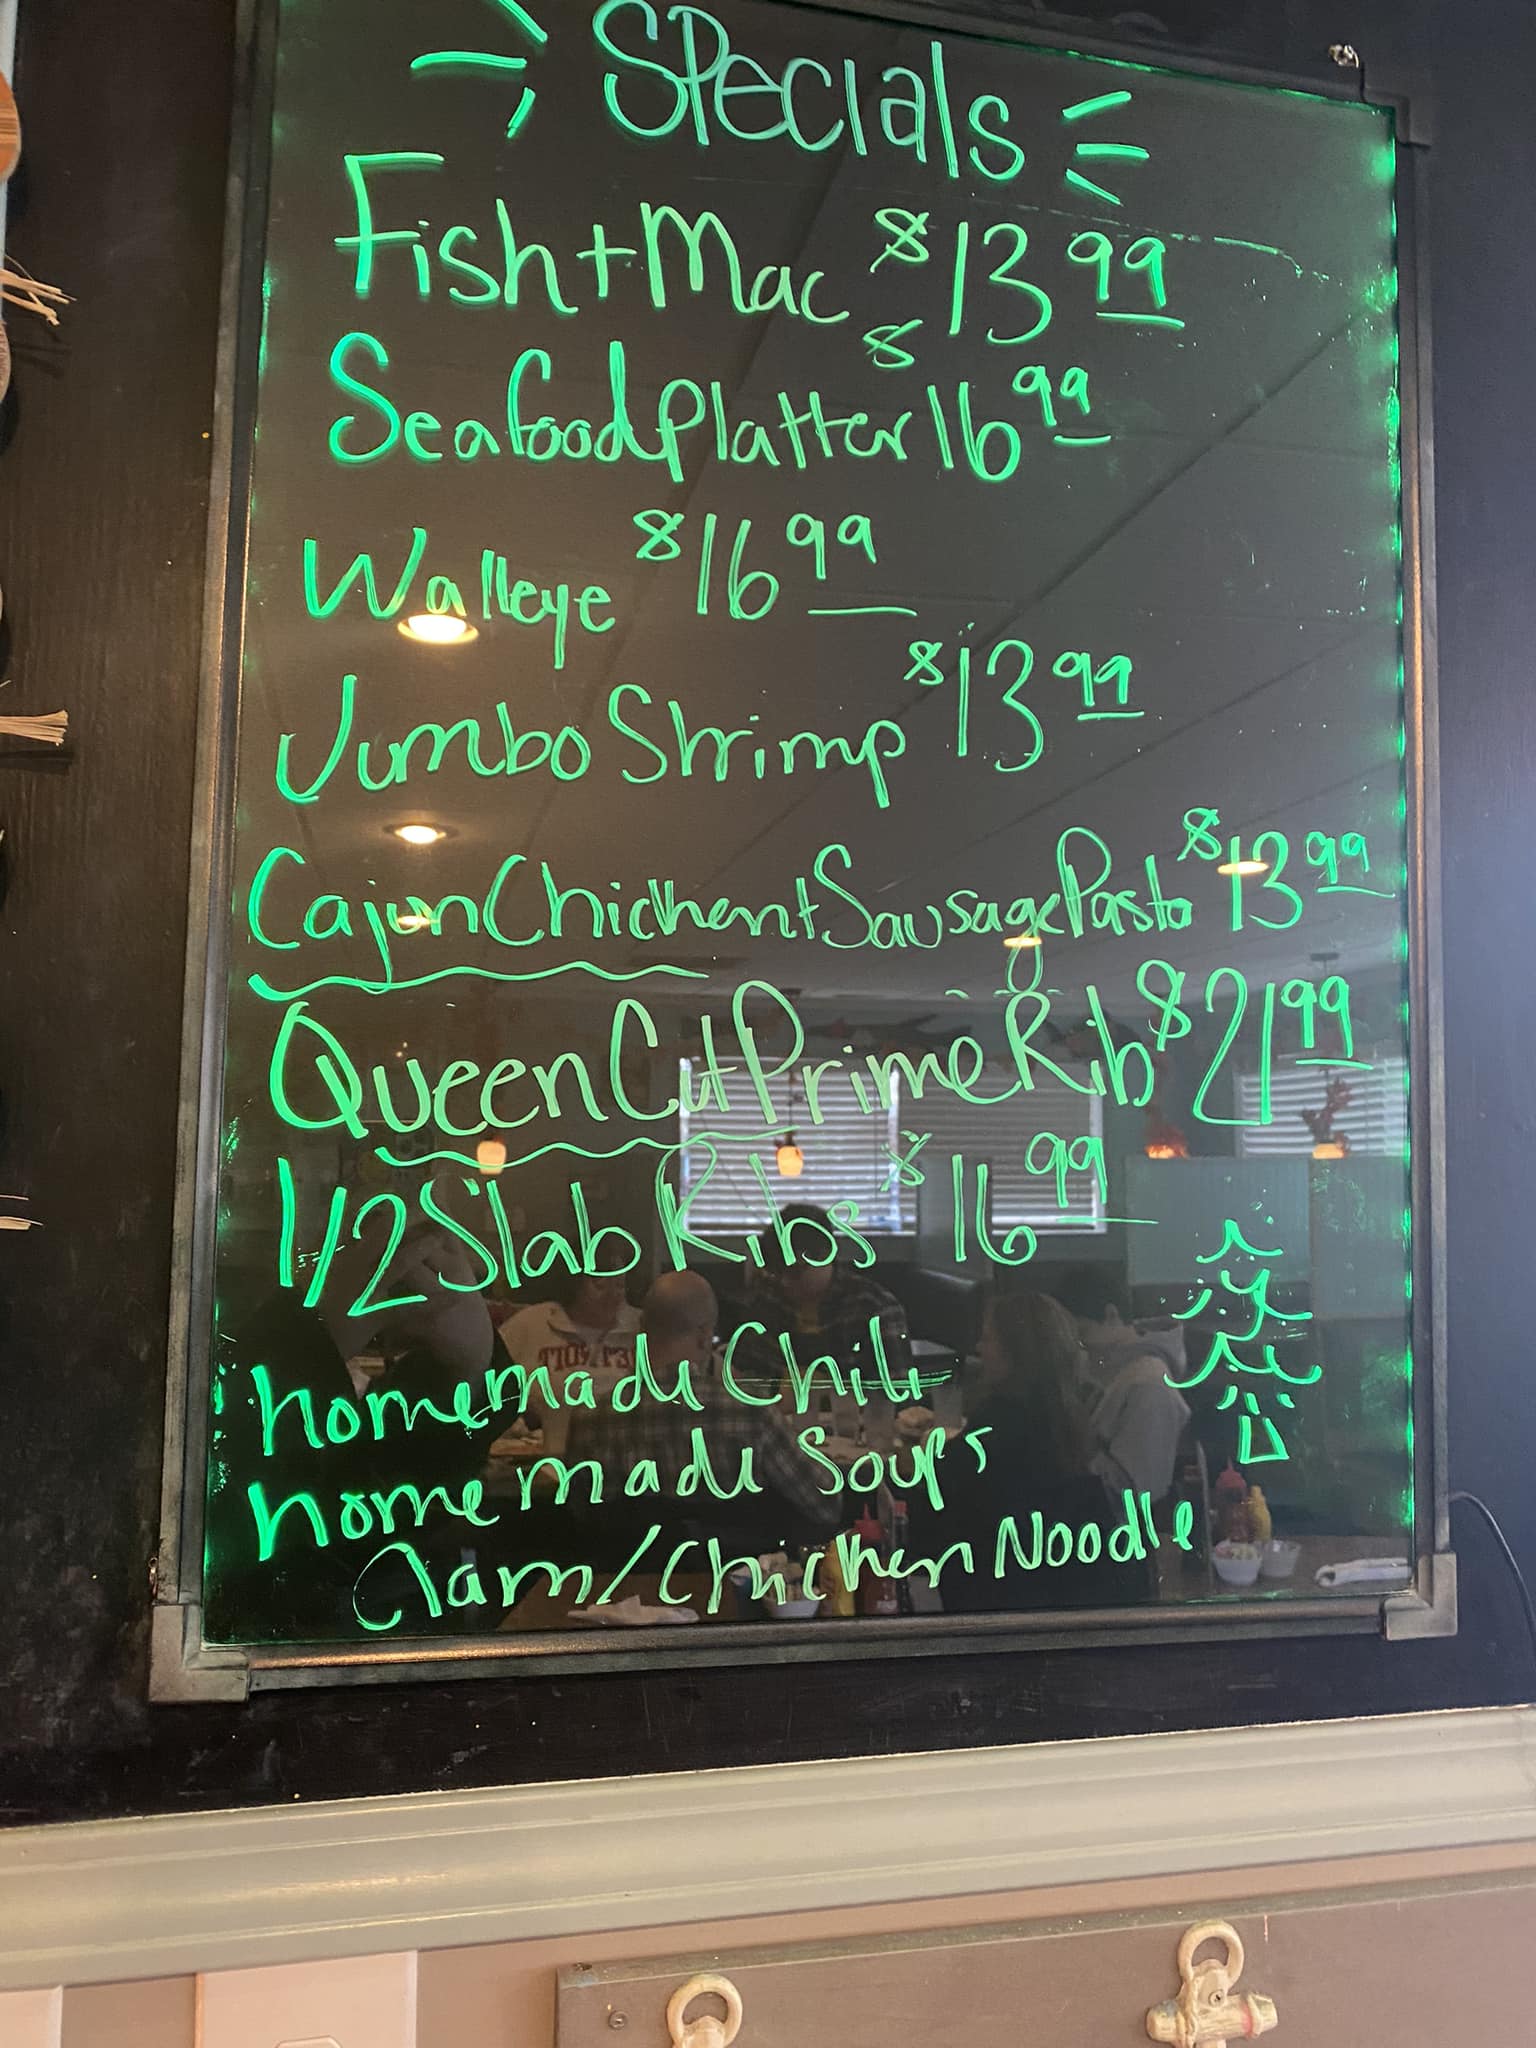 Specials
Fish + Mac $13.99
Seafood Platter $16.99
Walleye $16.99
Jumbo Shrimp $13.99
Cajun Chicken + Sausage Pasta $13.99
Queen Cut Prime Rib $21.99
1/2 Slab Ribs $16.99
homemade Chili
homemade Soups
Clam/Chicken Noodle